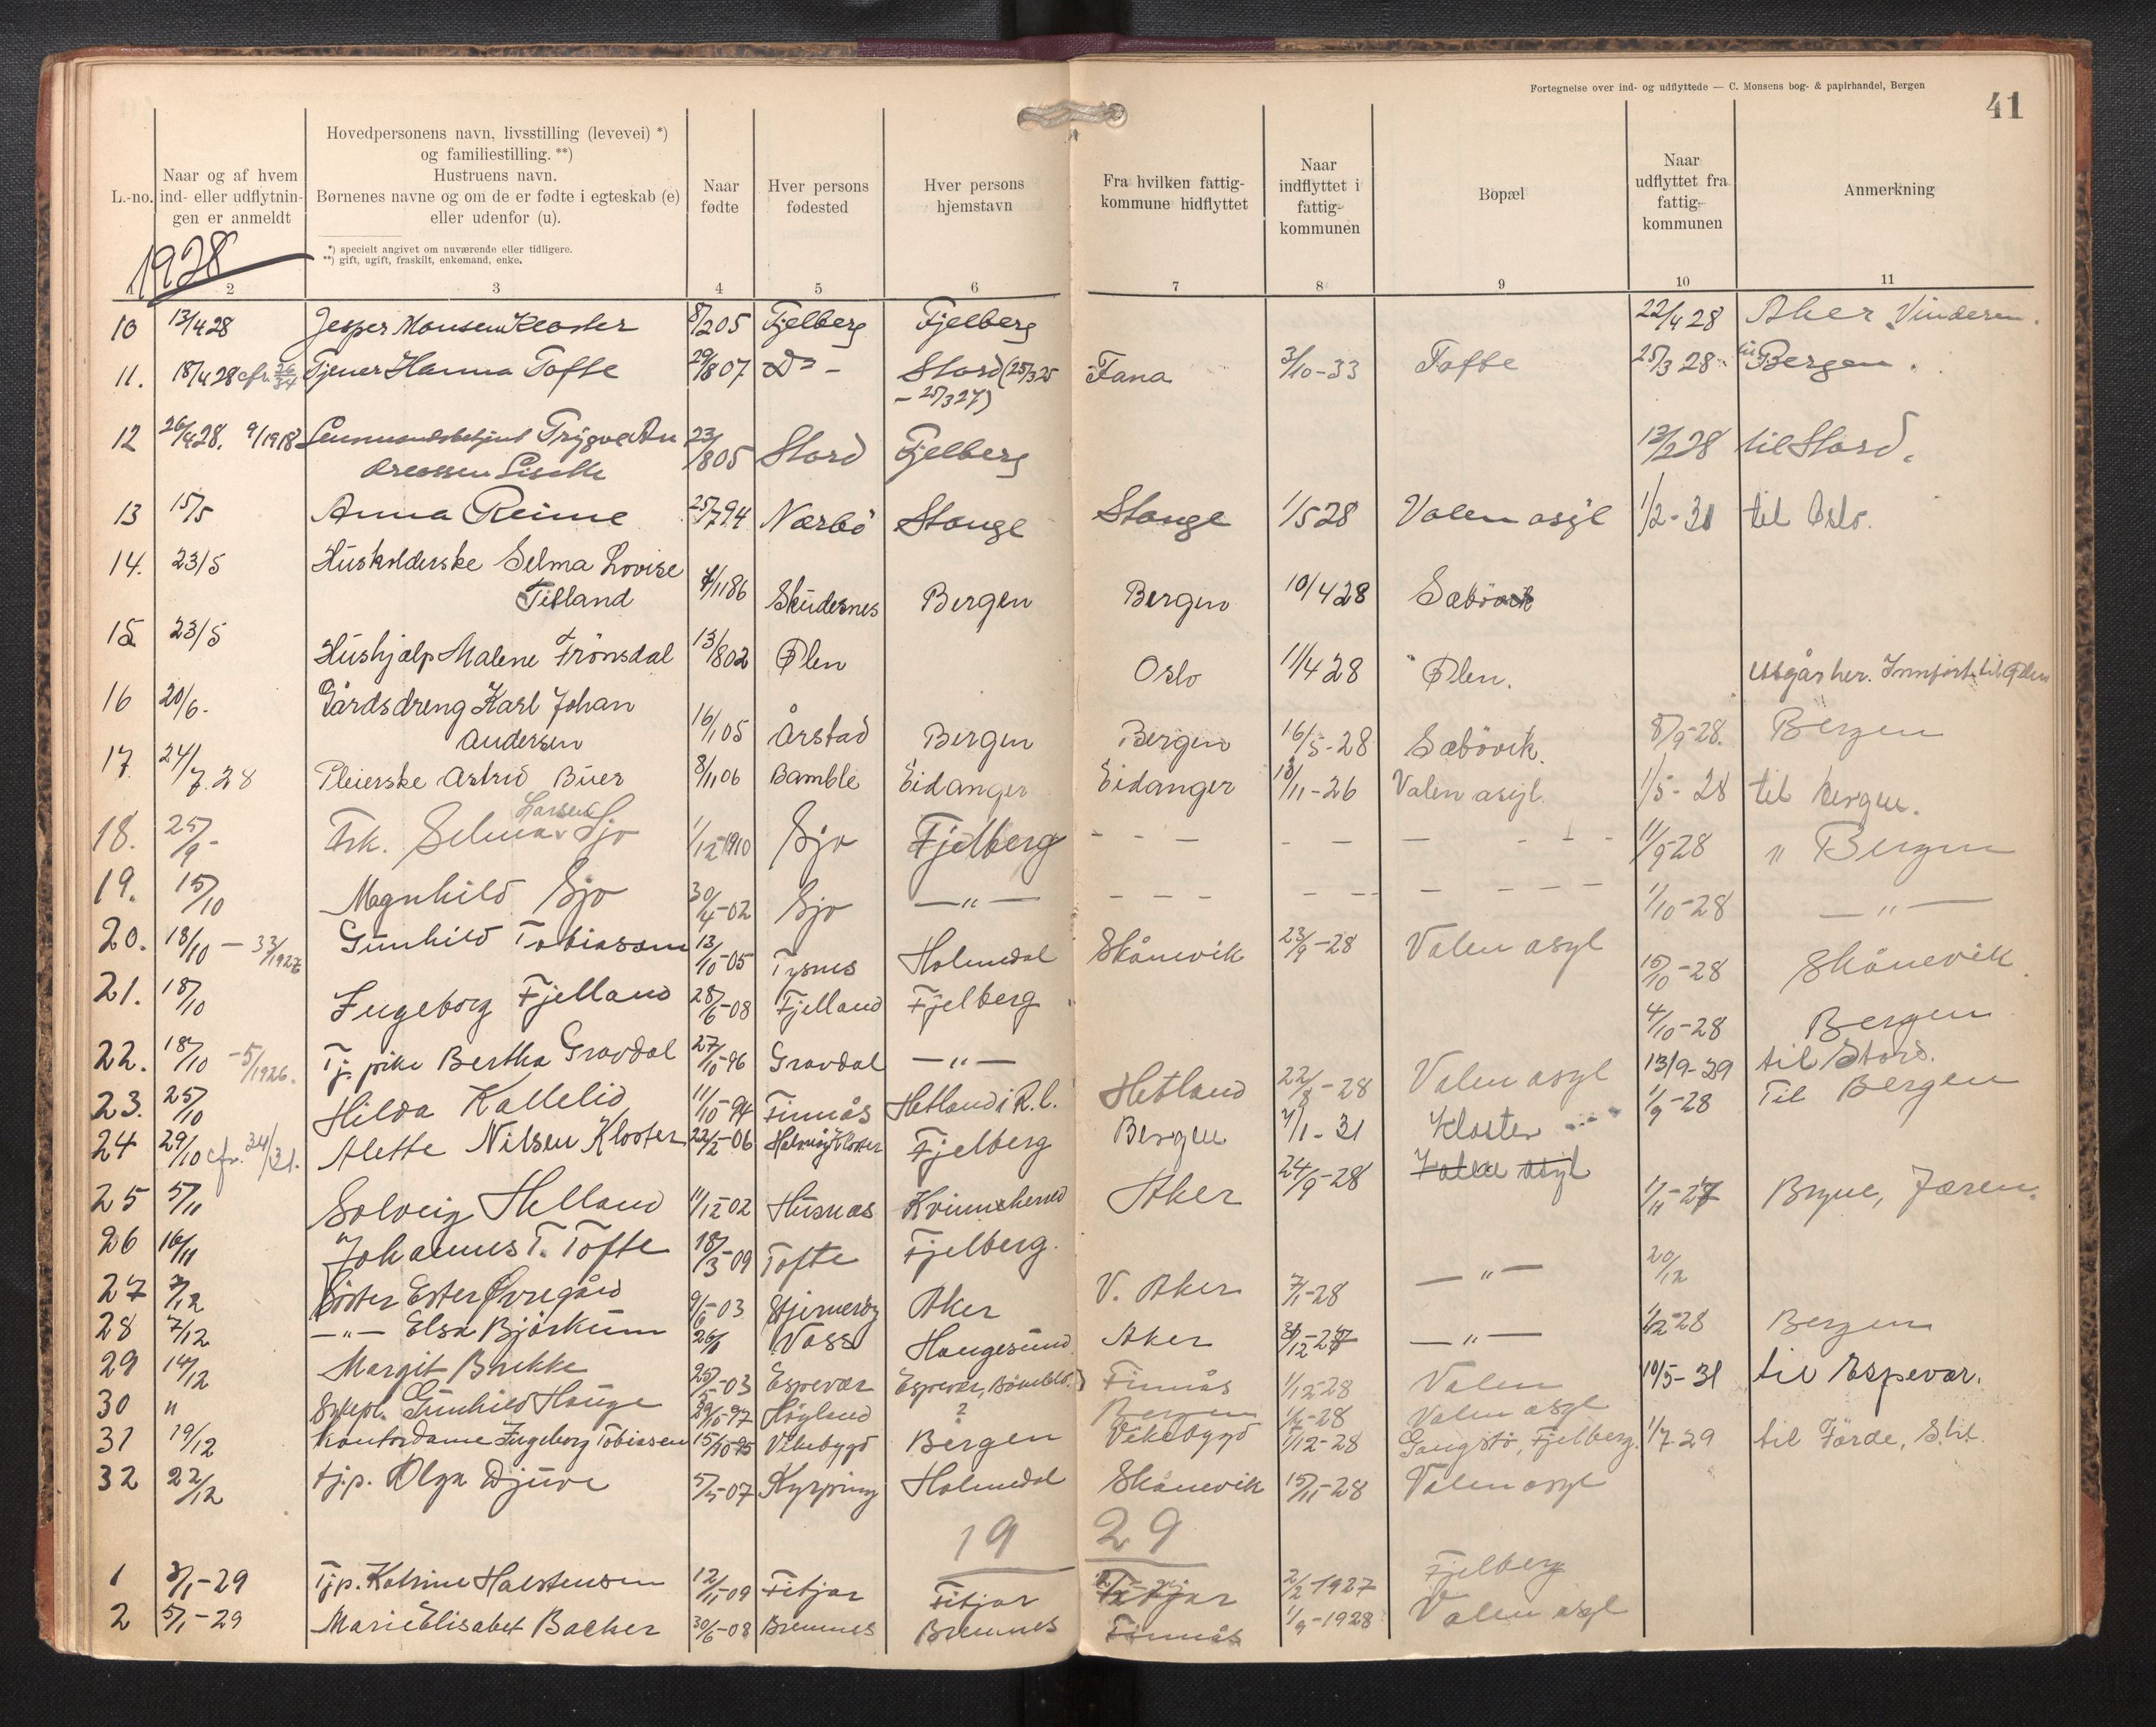 Fortegnelse over ind- og udflyttede — C. Monsens bog- & papirhandel, Bergen
41
L.-no.
Naar og af hvem ind- eller udflytnin-gen er anmeldt
Hovedpersonens navn, livsstilling (levevei) *)
og familiestilling. **)
Hustruens navn.
Børnenes navne og om de er fødte i egteskab (e)
eller udenfor (u).
*) specielt angivet om nuværende eller tidligere.
**) gift, ugift, fraskilt, enkemand, enke.
Naar fødte
Hver persons fødested
Hver persons hjemstavn
Fra hvilken fattig-kommune hidflyttet
Naar indflyttet i fattig-kommunen
Bopæl
Naar udflyttet fra fattig-kommunen
Anmerkning
1928
1 2 3 4 5 6 7 8 9 10 11
10 13/4 28 Jesper Monsen Kloster 8/2 05 Fjelberg Fjelberg 22/4 28 Aker Vinderen.
11. 18/4 28 cfr. 26/34 Tjener Hanna Tofte 29/8 07 Do - Stord (25/3 25 Fana 3/10-33 Tofte 25/3 28 til Bergen.
- 25/3 27)
12 26/4 28. 9/1918 Lensmandsbetjent Trygve An 23/8 05 Stord Fjelberg 13/2 28 til Stord.
dreassen Liseth
13 15/5 Anna Reime 25/7 94 Nærbö Stange Stange 1/5 28 Valen asyl 1/2-31 til Oslo.
14. 23/5 Husholderske Selma Lovise
Tilland 4/11 86 Skudesnes Bergen Bergen 10/4 28 Sæbövik
15 23/5 Hushjælp Malene Frönsdal 13/8 02 Ølen Oslo 11/4 28 Ølen. Utgår her. Innfört til Ølen
16 20/6. Gårdsdreng Karl Johan
Andersen 16/1 05 Årstad Bergen Bergen 16/5-28 Sæbövik. 8/9-28. Bergen
17 24/7.28 Pleierske Astrid Buer 8/11 06 Bamble Eidanger Eidanger 18/11-26 Valen asyl. 1/5-28 til Bergen.
Larsen
18. 25/9- Frk. Selma Sjo 1/12-1910 Sjo Fjelberg - - - - - - 11/9-28 " Bergen
19. 15/10 Magnhild Sjo 30/4-02 Sjo —"— - - - - - - 1/10-28 —"—
20. 18/10 - 33/1927 Gunhild Tobiassen 13/10-05 Tysnes Holmedal Skånevik 23/9-28 Valen asyl 15/10-28 Skånevik.
21. 18/10 Ingeborg Fjelland 28/6-08 Fjelland Fjelberg 4/10-28 Bergen
22. 18/10 -5/1926. Tj. pike Bertha Gravdal 27/10-96 Gravdal —"— 13/9-29 til Stord.
23. 25/10 Hilda Kallelid 11/10-94 Finnås Hetland i R.l. Hetland 22/8-28 Valen asyl 1/9-28 Til Bergen
24 29/10 cfr. 34/31. Alette Nilsen Kloster 22/2-06 Kloster Fjelberg Bergen 7/1-31 Kloster
25 5/11 Solveig Helland 11/12 02 Husnæs Kvinnherred Aker 24/9-28 Valen asyl 1/11-27 Bryne, Jæren.
26 16/11 Johannes T. Tofte 18/3-09 Tofte Fjelberg. 20/12
27 7/12 Söster Ester Övregård 9/6-03 Aker V. Aker 7/1-28 —"—
28 7/12 —"— Elsa Björkum 26/1 Voss Haugesund Aker 31/12-27 —"— 1/2-28 Bergen
29 14/12 Margit Brekke 25/5-03 Espevær Espevær, Bömlo. Finnås 1/12-28 Valen 10/5-31 til Espevær.
30 " Sykepl. Gunhild Hauge 29/10-97 Högland ? Bergen 1/7-28 Valen asyl
31 19/12 Kontordame Ingeborg Tobiasen 15/10-95 Vikebygd Bergen Vikebygd 1/12-28 Gaugstö, Fjelberg. 1/7-29 til Förde,
32 22/12 tj.p. Olga Djuve 5/5-07 Kyrping Holmedal Skånevik 15/11-28 Valen asyl
19 29
1 3/1-29 Tj.p. Katrine Halstensen 12/11-09 Fitjar Fitjar Fitjar 2/2-1927 Fjelberg
2 5/1-29 Marie Elisabet Backer 30/6-08 Bremnes Bremnes Finnås 1/9-1928 Valen asyl